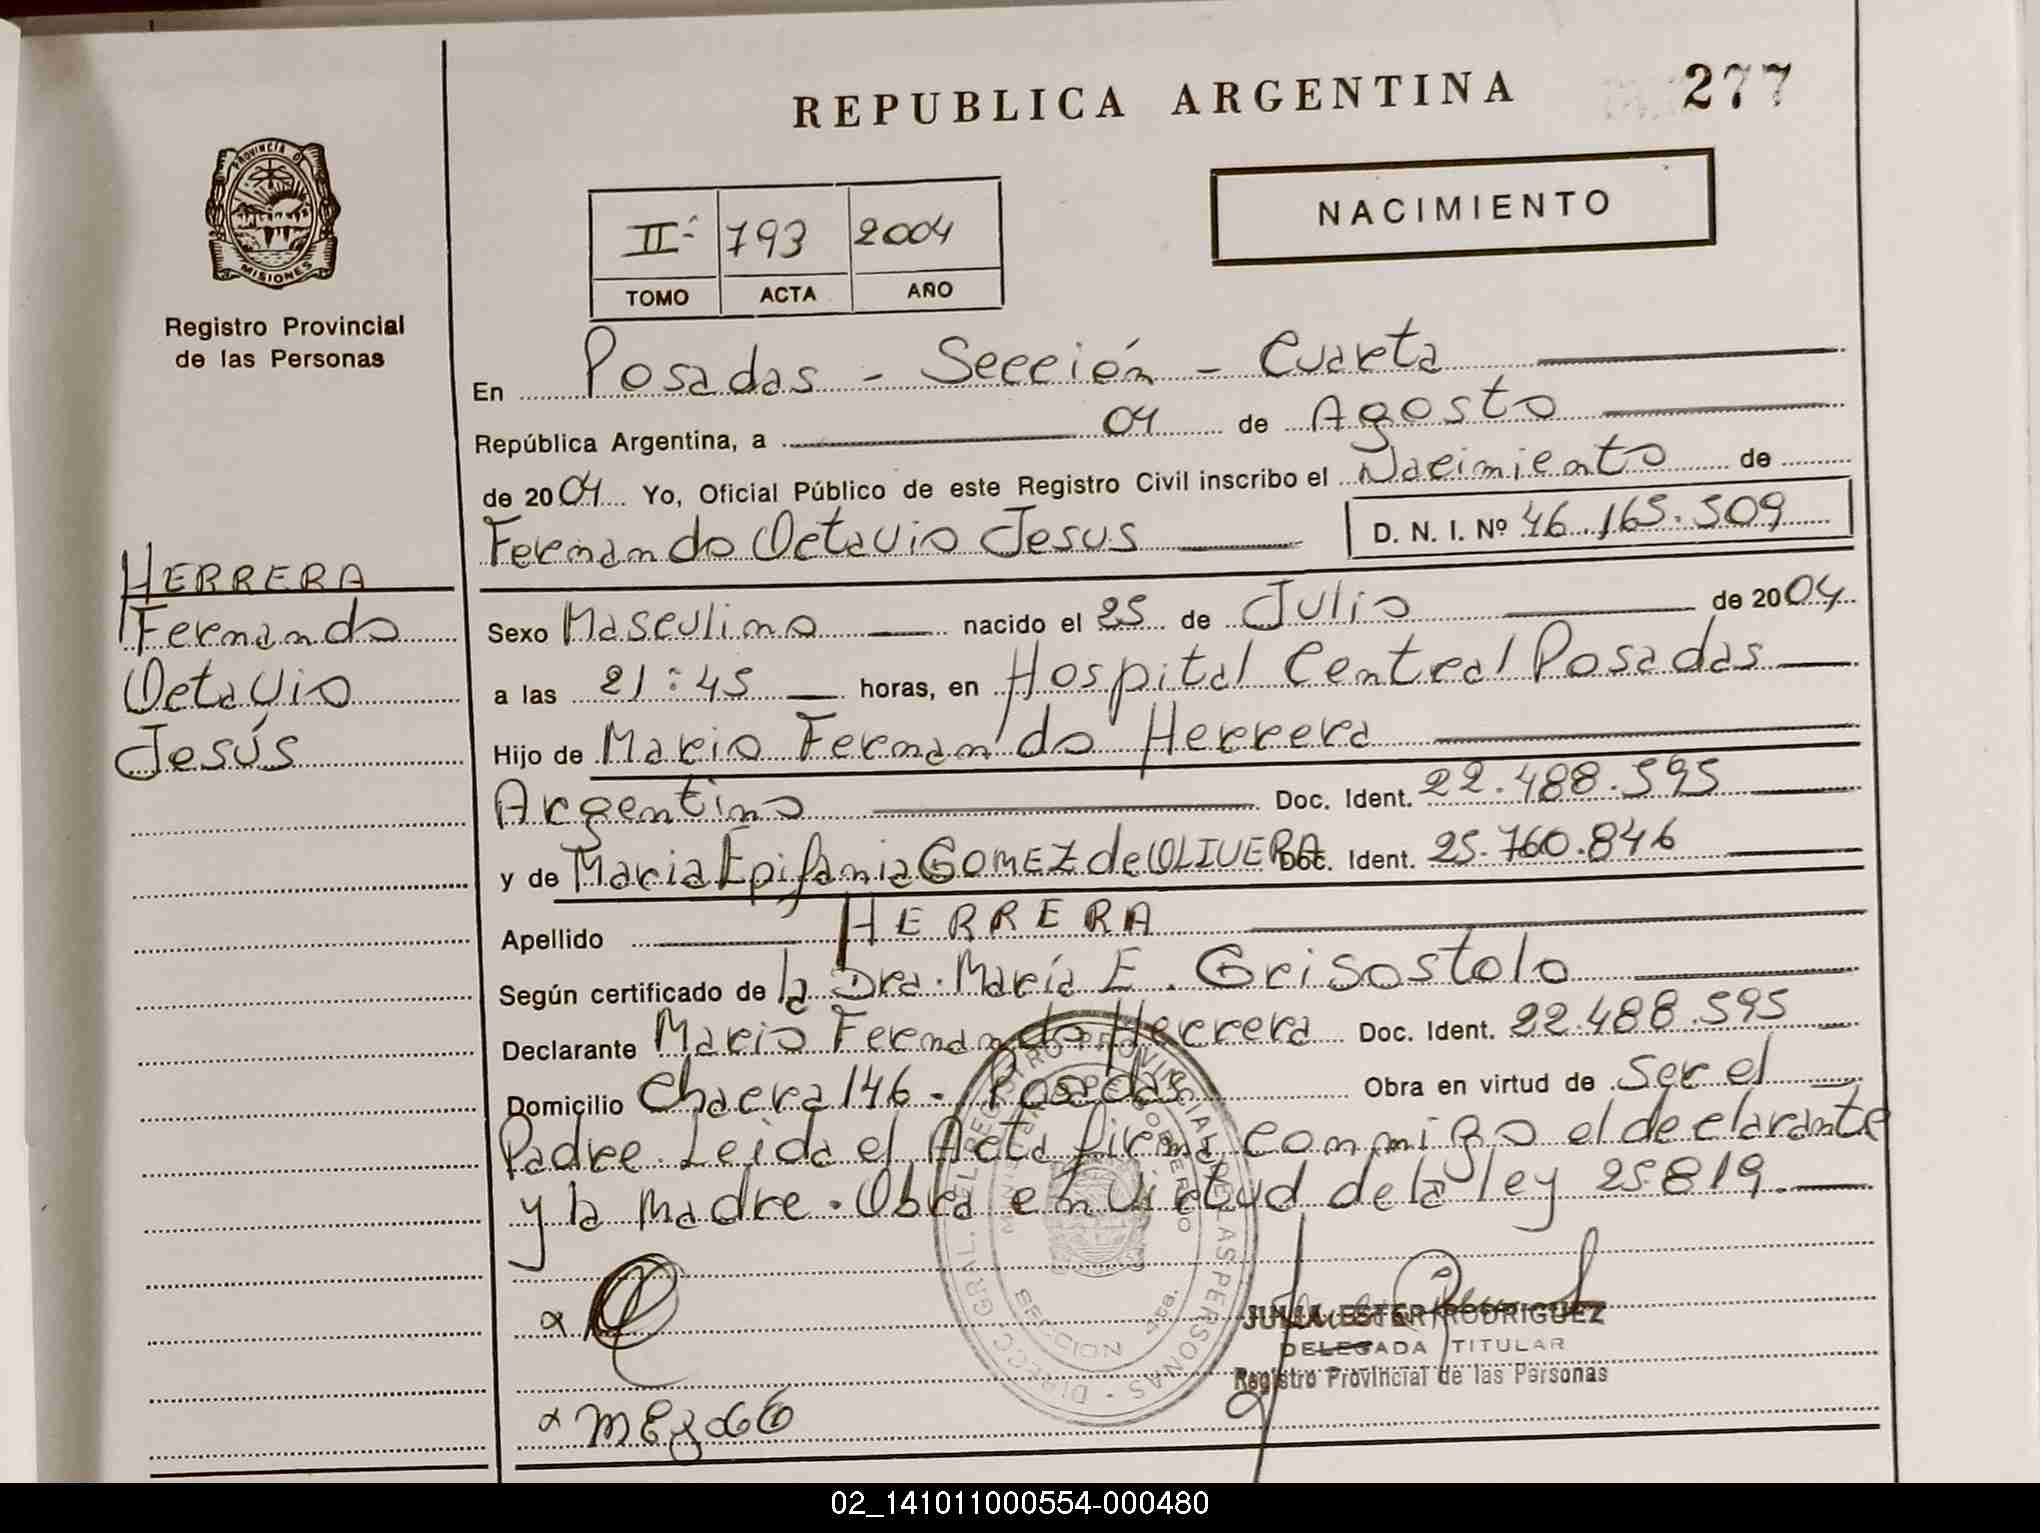 REPUBLICA ARGENTINA
277
PROVINCIA DE
MISIONES
Registro Provincial
de las Personas
NACIMIENTO
II- 793 2004
TOMO ACTA AÑO
En Posadas - Sección - Cuarta
República Argentina, a 04 de Agosto
de 2004 Yo, Oficial Público de este Registro Civil inscribo el Nacimiento de
Fernando Octavio Jesus D. N. I. Nº 46.165.509
HERRERA
Fernando
Octavio
Jesús
Sexo Masculino nacido el 25 de Julio de 2004
a las 21:45 horas, en Hospital Central Posadas
Hijo de Mario Fernando Herrera
Argentino Doc. Ident. 22.488.595
y de Maria Epifania GOMEZ de OLIVERA Doc. Ident. 25.760.846
Apellido HERRERA
Según certificado de la Dra. María E. Grisostolo
Declarante Mario Fernando Herrera Doc. Ident. 22.488.595
Domicilio Chacra 146 - Posadas Obra en virtud de Ser el
Padre. Leida el Acta firma conmigo el declarante
y la madre. Obra en Virtud de la ley 25819.
DIRECC. GRAL. DEL REGISTRO PROVINCIAL DE LAS PERSONAS
SECCION 4ta.
JULIA ESTER RODRIGUEZ
DELEGADA TITULAR
Registro Provincial de las Personas
02_141011000554-000480